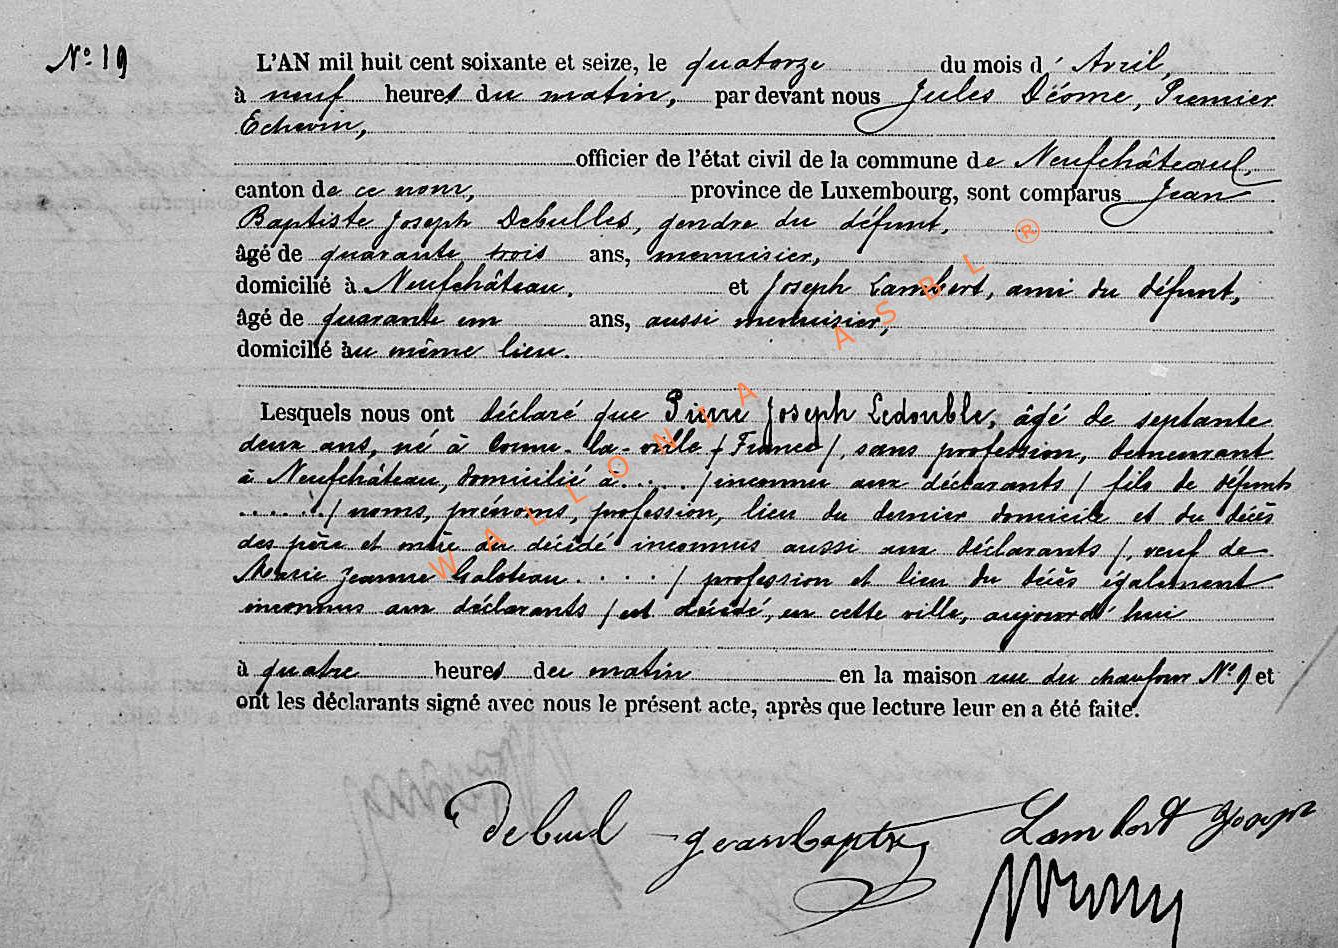 N° 19
L'AN mil huit cent soixante et seize, le quatorze du mois d' Avril,
à neuf heures du matin, par devant nous Jules Désome, Premier
Echevin,
officier de l'état civil de la commune de Neufchâteau,
canton de ce nom, province de Luxembourg, sont comparus Jean
Baptiste Joseph Debulles, gendre du défunt,
âgé de quarante trois ans, menuisier,
domicilié à Neufchâteau, et Joseph Lambert, ami du défunt,
âgé de quarante un ans, aussi menuisier,
domicilié au même lieu.
Lesquels nous ont déclaré que Pierre Joseph Ledouble, âgé de septante
deux ans, né à -la-ville (France), sans profession, demeurant
à Neufchâteau, domicilié à ..... (inconnu aux déclarants) fils de défunts
...... (noms, prénoms, profession, lieu du dernier domicile et du décès
des père et mère du décédé inconnus aussi aux déclarants), veuf de
Marie Jeanne Galoteau .... (profession et lieu du décès également
inconnus aux déclarants) est décédé, en cette ville, aujourd'hui
à quatre heures du matin en la maison rue du chaufour N° 9 et
ont les déclarants signé avec nous le présent acte, après que lecture leur en a été faite.
Debul jeanbaptis Lambert Joseph
WALLONIA ASBL ®